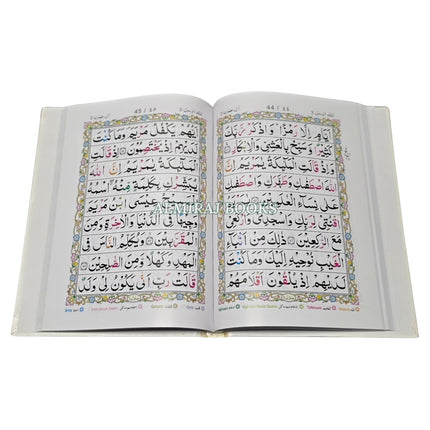 44 / ٤٤
يَّامٍ اِلَّا رَمْزًا ؕ وَاذْكُرْ رَّبَّكَ
كَثِيْرًا وَّسَبِّحْ بِالْعَشِيِّ وَالْاِبْكَارِ
وَاِذْ قَالَتِ الْمَلٰٓئِكَةُ يٰمَرْيَمُ اِنَّ اللّٰهَ
اصْطَفٰىكِ وَطَهَّرَكِ وَاصْطَفٰىكِ
عَلٰى نِسَآءِ الْعٰلَمِيْنَ يٰمَرْيَمُ
اقْنُتِيْ لِرَبِّكِ وَاسْجُدِيْ وَارْكَعِيْ
مَعَ الرّٰكِعِيْنَ ذٰلِكَ مِنْ اَنْۢبَآءِ
الْغَيْبِ نُوْحِيْهِ اِلَيْكَ ؕ وَمَا كُنْتَ
لَدَيْهِمْ اِذْ يُلْقُوْنَ اَقْلَامَهُمْ
45 / ٤٥
اَيُّهُمْ يَكْفُلُ مَرْيَمَ وَمَا كُنْتَ
لَدَيْهِمْ اِذْ يَخْتَصِمُوْنَ اِذْ قَالَتِ
الْمَلٰٓئِكَةُ يٰمَرْيَمُ اِنَّ اللّٰهَ
يُبَشِّرُكِ بِكَلِمَةٍ مِّنْهُ اسْمُهُ
الْمَسِيْحُ عِيْسَى ابْنُ مَرْيَمَ
وَجِيْهًا فِي الدُّنْيَا وَالْاٰخِرَةِ وَمِنَ
الْمُقَرَّبِيْنَ وَيُكَلِّمُ النَّاسَ فِي
الْمَهْدِ وَكَهْلًا وَّمِنَ الصّٰلِحِيْنَ
قَالَتْ رَبِّ اَنّٰى يَكُوْنُ لِيْ وَلَدٌ
ALMIRAJ BOOKS